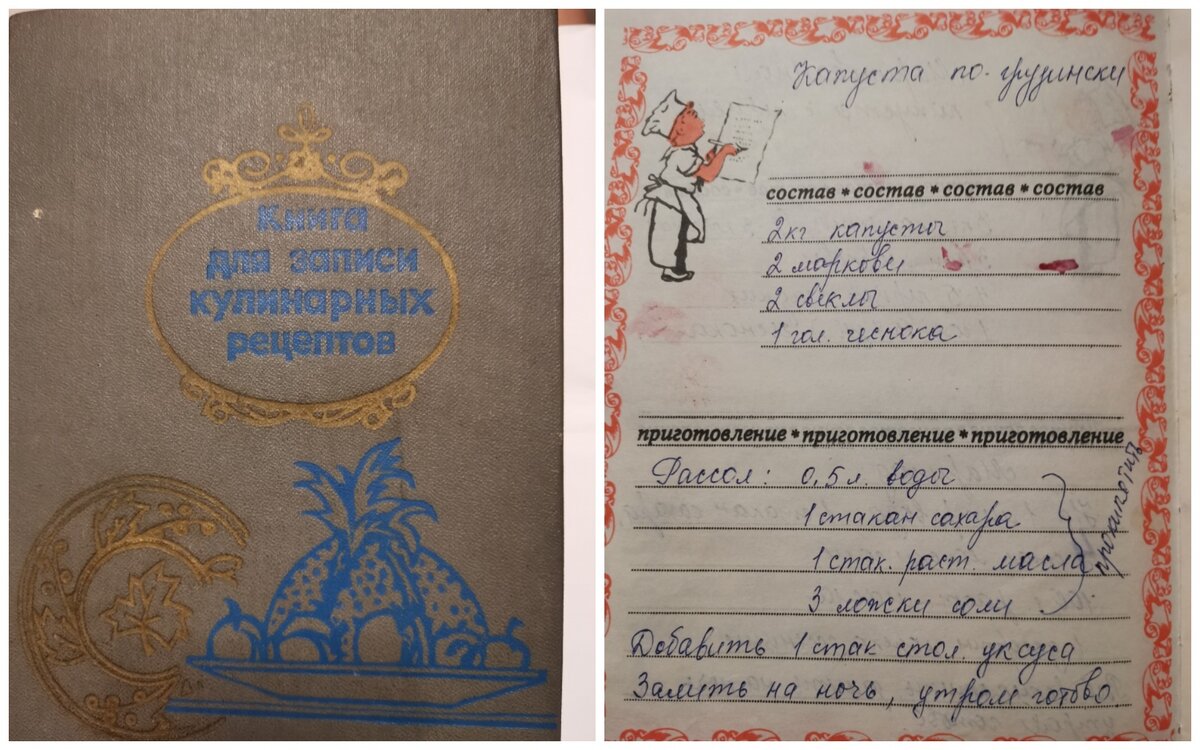 Книга
для записи
кулинарных
рецептов
Капуста по-грузински
состав * состав * состав * состав
2кг капусты
2 маркови
2 свеклы
1 гол. чеснока
приготовление * приготовление * приготовление
Рассол: 0,5 л. воды
1 стакан сахара
1 стак. раст. масла
3 ложки соли
прокипятить
Добавить 1 стак стол уксуса
Залить на ночь, утром готово.